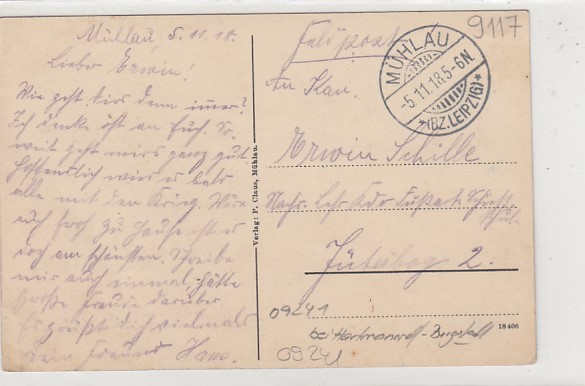 Mühlau 5.11.18.
Lieber Erwin!
Wie geht dirs denn immer?
Ich denke oft an Euch. So
weit geht mirs ganz gut
Hoffentlich wird es bald
alle mit den Krieg. Wäre
auch froh. Zu Hause ist es
doch am schönsten. Schreibe
mir auch einmal, hätte
große Freude darüber
Es grüßt dich vielmals
dein Freund Hans.
Verlag: P. Claus, Mühlau.
Feldpost
9117
MÜHLAU
-5.11.18.5-6N.
*(BZ.LEIPZIG)*
An Kan.
Erwin Schille
Nachr. Lehr Kdo Fußart. Schieß
schule
Jüterbog 2.
09241
18406
bei Hartmannsd-Burgstädt
09241